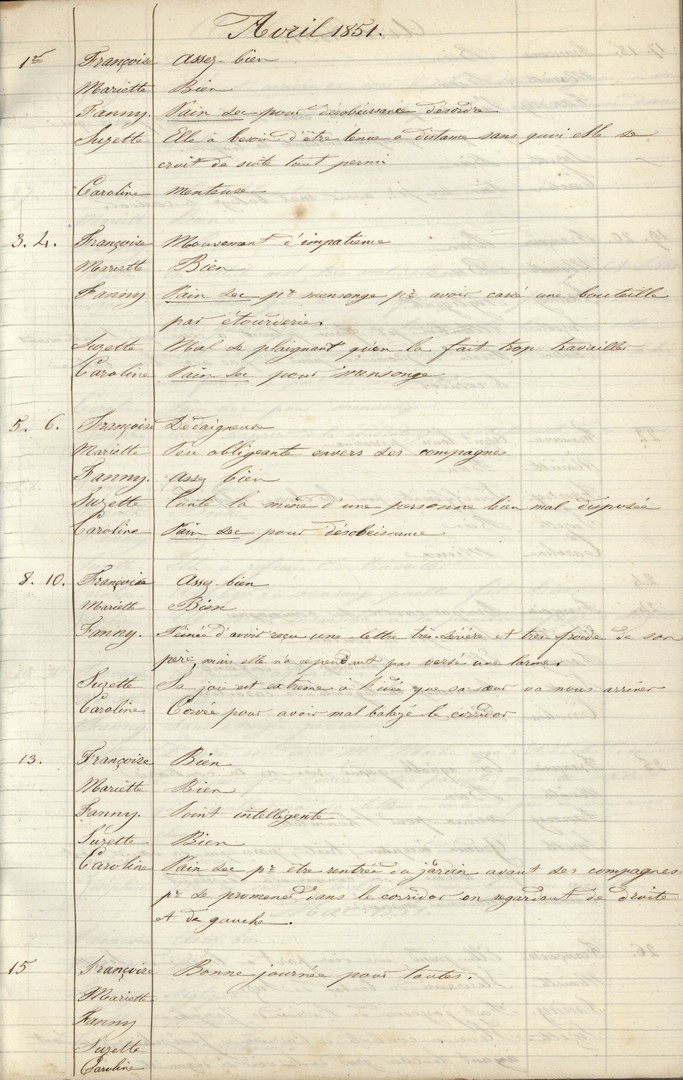 Avril 1851.
1er Françoise Assez bien
Mariette Bien
Fanny. Pain sec pour désobéissance désordre
Suzette Elle a besoin d'être tenue à distance sans quoi elle se
croit de suite tout permi
Caroline menteuse
3. 4. Françoise Mouvement d'impatience
Mariette Bien
Fanny Pain sec pr mensonge pr avoir cassé une bouteille
par étourderie.
Suzette Mal se plaignant qu'on la fait trop travailler
Caroline Pain sec pour mensonge
5. 6. Françoise Dédaigneuse
Mariette Peu obligeante envers ses compagnes
Fanny. Assez bien
Suzette Toute la mine d'une personne bien mal disposée
Caroline Pain sec pour désobeissance
8. 10. Françoise Assez bien
Mariette Bien
Fanny. Peinée d'avoir reçu une lettre très-sévère et très froide de son
père, mais elle n'a cependant pas versé une larme.
Suzette Sa joie est extrême à l'idée que sa sœur va nous arriver
Caroline Corvée pour avoir mal balayé le corridor
13. Françoise Bien
Mariette Bien
Fanny. Point intelligente
Suzette Bien
Caroline Pain sec pr être rentrée du jardin avant ses compagnes
pr se promener dans le corridor en regardant de droite
et de gauche.
15 Françoise Bonne journée pour toutes.
Mariette
Fanny
Suzette
Caroline